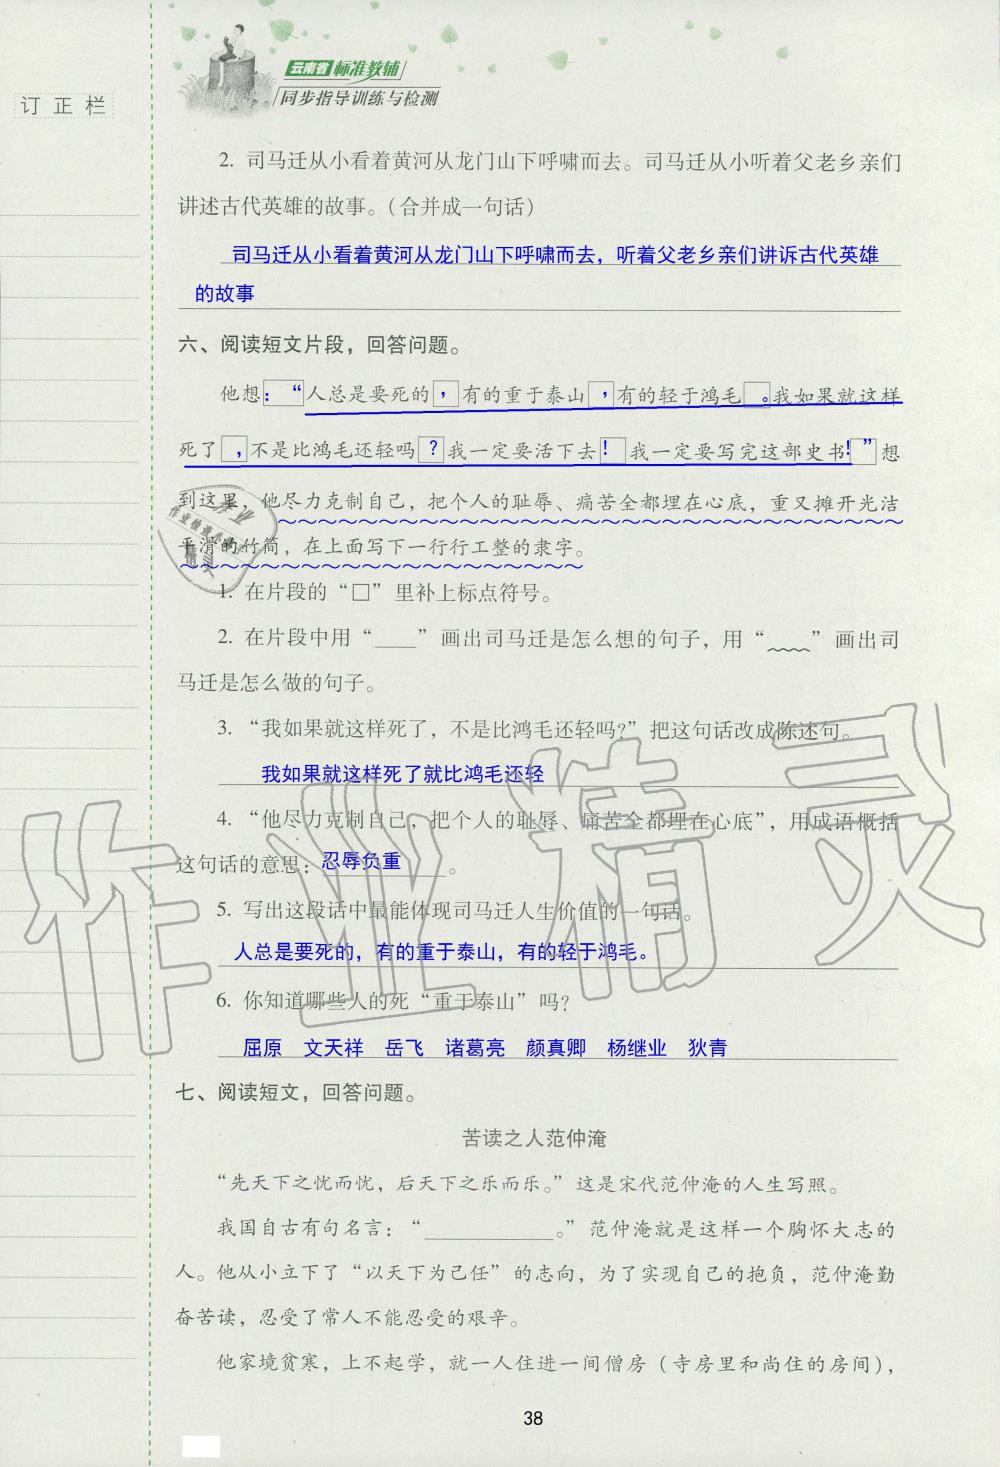 云南省标准教辅
同步指导训练与检测
订正栏
2. 司马迁从小看着黄河从龙门山下呼啸而去。司马迁从小听着父老乡亲们
讲述古代英雄的故事。（合并成一句话）
司马迁从小看着黄河从龙门山下呼啸而去，听着父老乡亲们讲诉古代英雄
的故事
六、阅读短文片段，回答问题。
他想：“人总是要死的，有的重于泰山，有的轻于鸿毛。我如果就这样
死了，不是比鸿毛还轻吗？我一定要活下去！我一定要写完这部史书！”想
到这里，他尽力克制自己，把个人的耻辱、痛苦全都埋在心底，重又摊开光洁
平滑的竹简，在上面写下一行行工整的隶字。
1. 在片段的“□”里补上标点符号。
2. 在片段中用“____”画出司马迁是怎么想的句子，用“﹏﹏”画出司
马迁是怎么做的句子。
3. “我如果就这样死了，不是比鸿毛还轻吗？”把这句话改成陈述句。
我如果就这样死了就比鸿毛还轻
4. “他尽力克制自己，把个人的耻辱、痛苦全都埋在心底”，用成语概括
这句话的意思：忍辱负重。
5. 写出这段话中最能体现司马迁人生价值的一句话。
人总是要死的，有的重于泰山，有的轻于鸿毛。
6. 你知道哪些人的死“重于泰山”吗？
屈原 文天祥 岳飞 诸葛亮 颜真卿 杨继业 狄青
七、阅读短文，回答问题。
苦读之人范仲淹
“先天下之忧而忧，后天下之乐而乐。”这是宋代范仲淹的人生写照。
我国自古有句名言：“__________。”范仲淹就是这样一个胸怀大志的
人。他从小立下了“以天下为己任”的志向，为了实现自己的抱负，范仲淹勤
奋苦读，忍受了常人不能忍受的艰辛。
他家境贫寒，上不起学，就一人住进一间僧房（寺房里和尚住的房间），
38
作业精灵